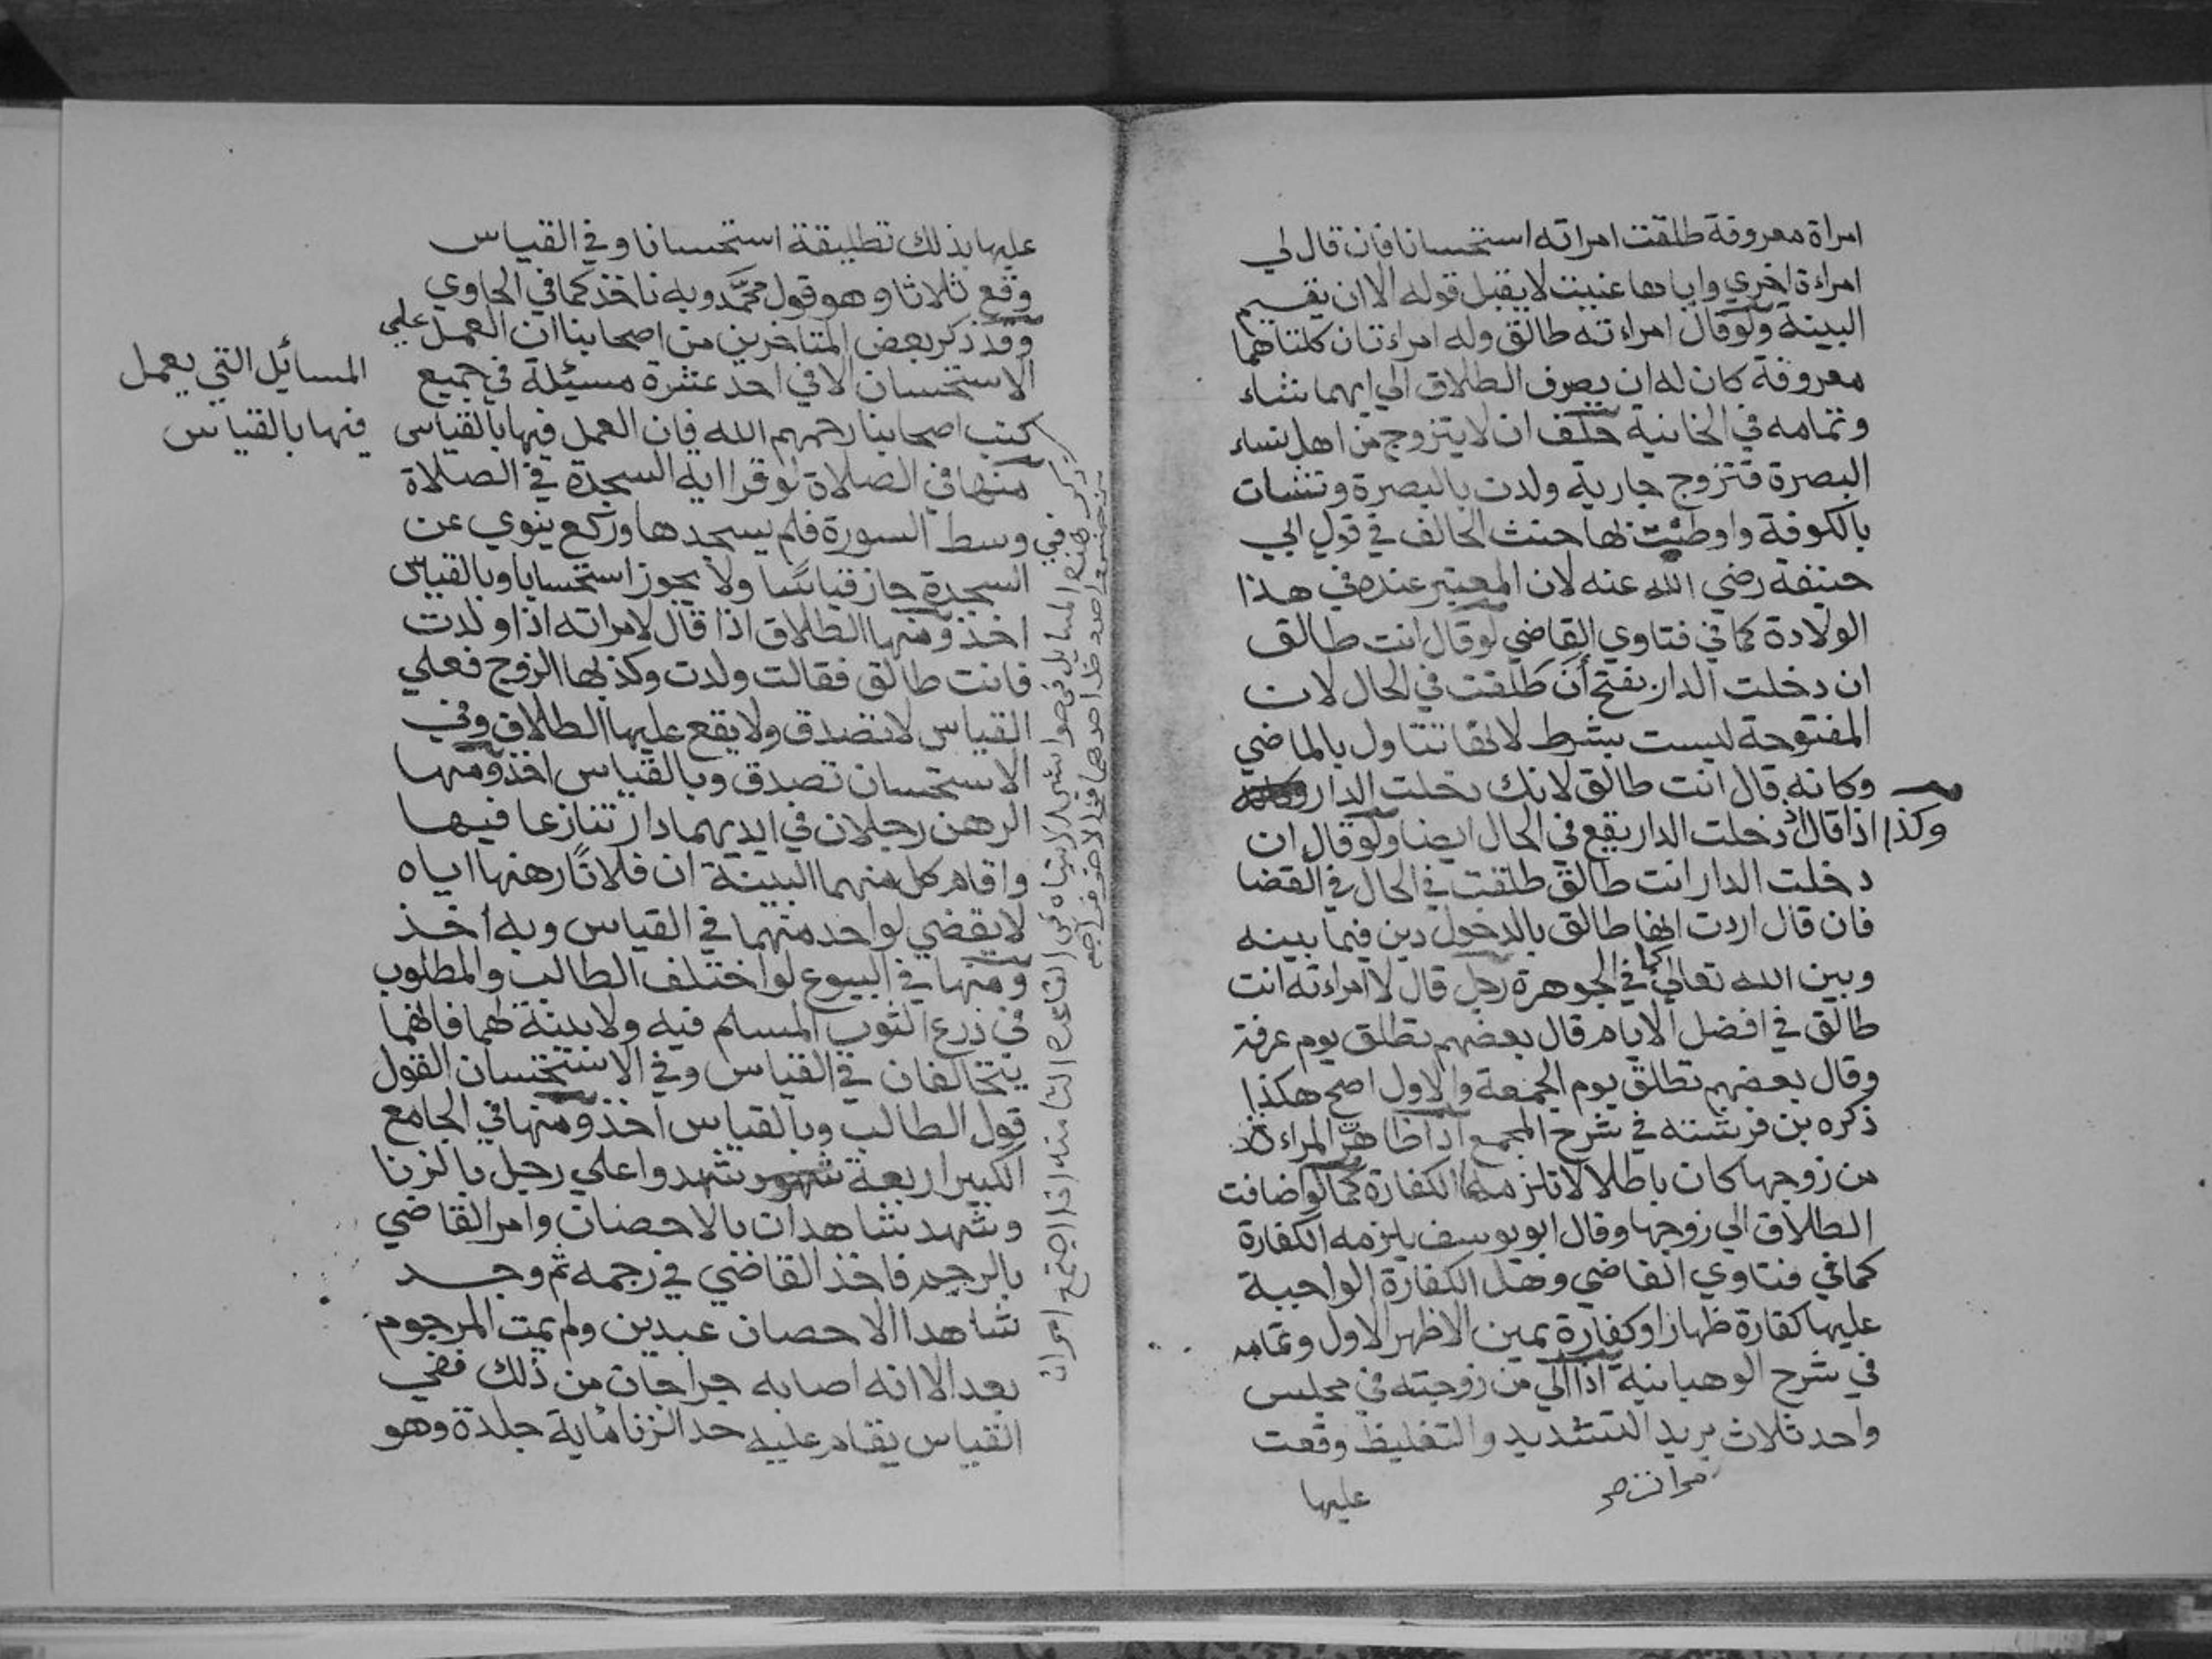 امراة معروفة طلقت امراته استحسانا فان قال لي
امراءة اخري واياها عنيت لا يقبل قوله الا ان يقيم
البينة ولو قال امراءته طالق وله امراءتان كلتاهما
معروفة كان له ان يصرف الطلاق الي ايهما شاء
وتمامه في الخانية حلف ان لا يتزوج من اهل نساء
البصرة فتزوج جارية ولدت بالبصرة ونشات
بالكوفة واوطنت بها حنث الحالف في قول ابي
حنيفة رضي الله عنه لان المعتبر عنده في هذا
الولادة كما في فتاوي القاضي لو قال انت طالق
ان دخلت الدار بفتح أن طلقت في الحال لان
المفتوحة ليست بشرط لانها تتناول بالماضي
وكانه قال انت طالق لانك دخلت الدار
وكذا اذا قال اذ دخلت الدار يقع في الحال ايضا ولو قال ان
دخلت الدار انت طالق طلقت في الحال في القضا
فان قال اردت انها طالق بالدخول دين فيما بينه
وبين الله تعالي كما في الجوهرة رجل قال لامراءته انت
طالق في افضل الايام قال بعضهم تطلق يوم عرفة
وقال بعضهم تطلق يوم الجمعة والاول اصح هكذا
ذكره بن فرشته في شرح المجمع اذا ظاهر المراءة
من زوجها كان باطلا لا تلزمها الكفارة كما لو اضافت
الطلاق الي زوجها وقال ابو يوسف يلزمه الكفارة
كما في فتاوي القاضي وهل الكفارة الواجبة
عليها كفارة ظهار او كفارة يمين الاظهر الاول وتمامه
في شرح الوهبانية اذا الي من زوجته في مجلس
واحد ثلاث يريد التشديد والتغليظ وقعت
مرات صح
عليها
عليها بذلك تطليقة استحسانا وفي القياس
وقع ثلاثا وهو قول محمَّد وبه ناخذ كما في الحاوي
وقد ذكر بعض المتاخرين من اصحابنا ان العمل علي
الاستحسان الا في احد عشرة مسئلة في جميع
كتب اصحابنا رحمهم الله فان العمل فيها بالقياس
المسايل التي يعمل
فيها بالقياس
منها في الصلاة لو قرا اية السجدة في الصلاة
في وسط السورة فلم يسجدها وركع ينوي عن
السجدة جاز قياسًا ولا يجوز استحسانا وبالقياس
اخذ ومنها الطلاق اذا قال لامراته اذا ولدت
فانت طالق فقالت ولدت وكذبها الزوج فعلي
القياس لا تصدق ولا يقع عليها الطلاق وفي
الاستحسان تصدق وبالقياس اخذ ومنها
الرهن رجلان في ايديهما دار تنازعا فيها
واقام كل منهما البينة ان فلانًا رهنها اياه
لا يقضي لواحد منهما في القياس وبه أخذ
ومنها في البيوع لو اختلف الطالب والمطلوب
في ذرع الثوب المسلم فيه ولا بينة لهما فانهما
يتحالفان في القياس وفي الاستحسان القول
قول الطالب وبالقياس اخذ ومنها في الجامع
الكبير اربعة شهود شهدوا علي رجل بالزنا
وشهد شاهدان بالاحصان وامر القاضي
بالرجم فاخذ القاضي في رجمه ثم وجد
شاهدا الاحصان عبدين ولم يمت المرجوم
بعد الا انه اصابه جراحات من ذلك ففي
القياس يقام عليه حد الزنا ماية جلدة وهو